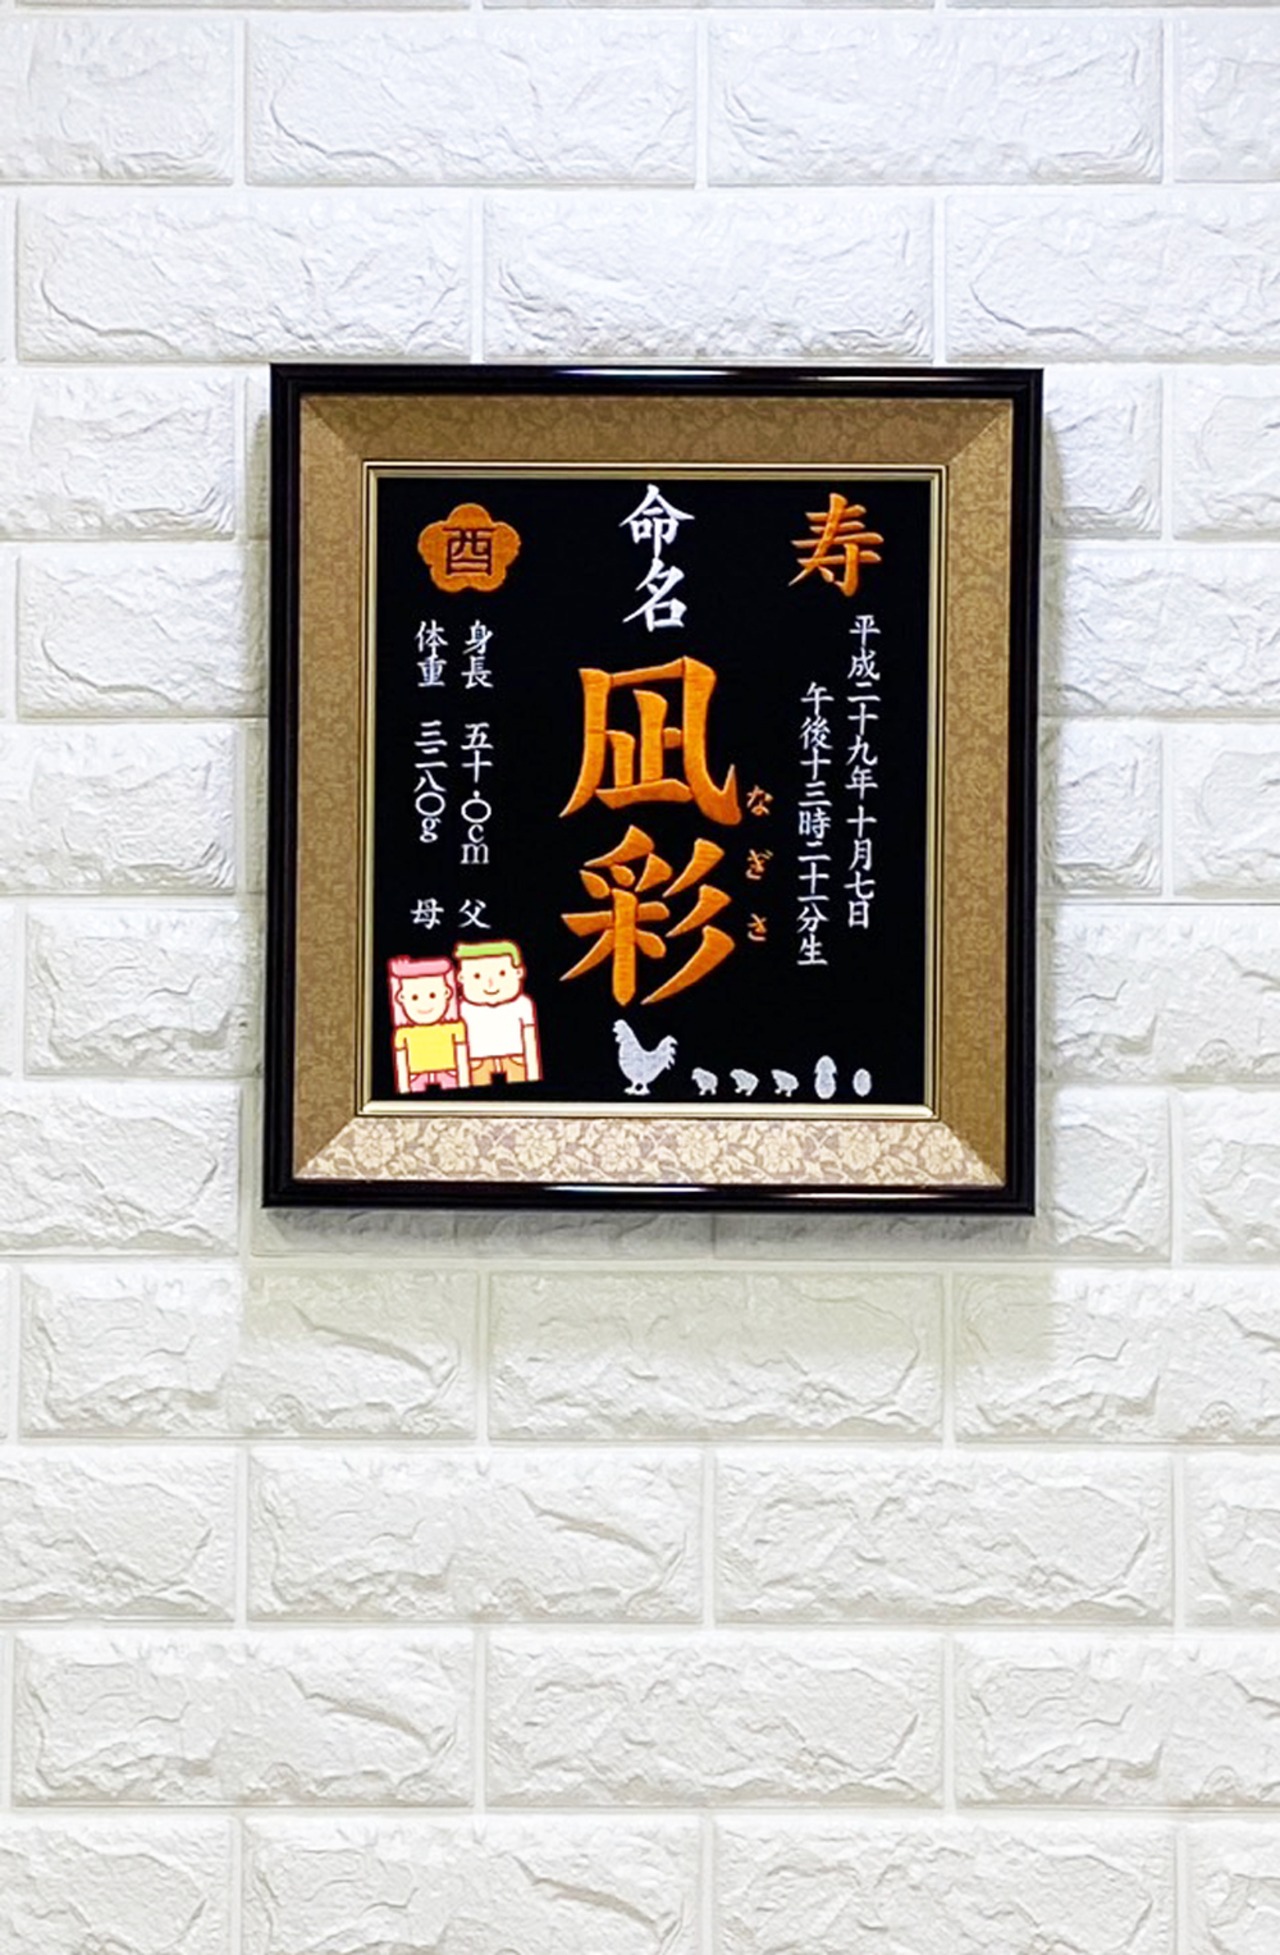 寿
平成二十九年十月七日
午後十三時二十一分生
命名
凪彩
なぎさ
酉
身長 五十.〇cm
体重 三二八〇g
父
母